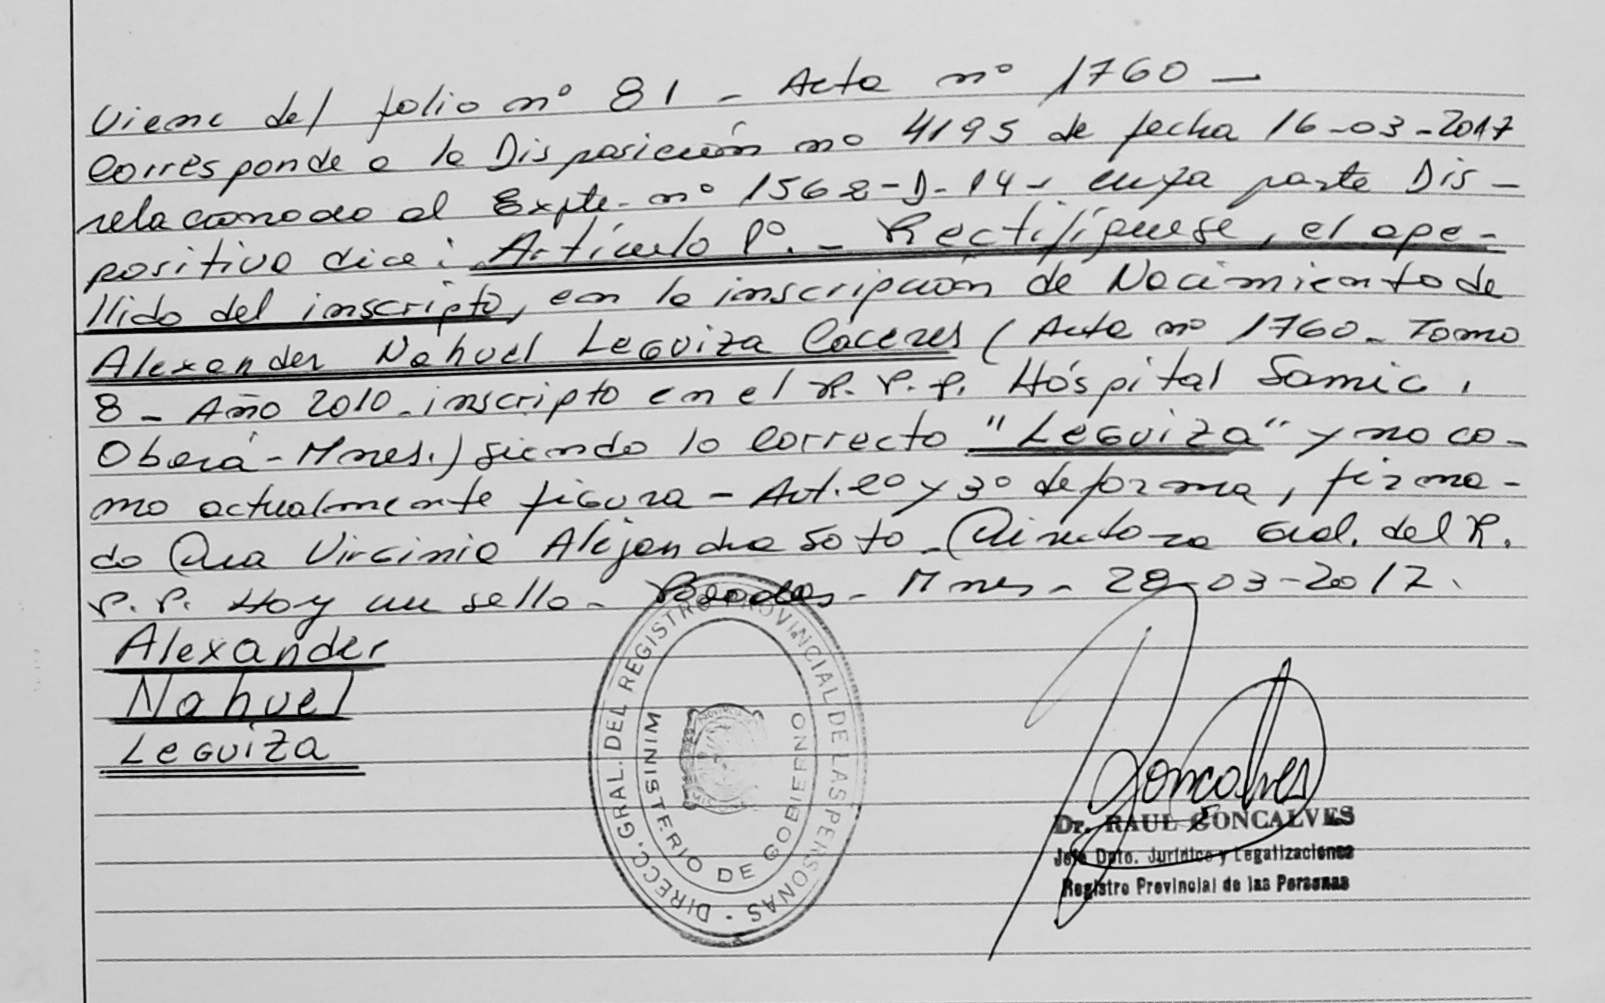 Viene del folio nº 81 - Acta nº 1760 -
Corresponde a la Disposición nº 4195 de fecha 16-03-2017
relacionado al Expte. nº 1568-D-14- cuya parte Dis-
positiva dice: Artículo 1º. - Rectifíquese, el ape-
llido del inscripto, en la inscripción de Nacimiento de
Alexander Nahuel Leguiza Caceres (Acta nº 1760 - Tomo
8 - Año 2010 - inscripto en el R. P. P. Hospital Samic,
Oberá - Mnes.) siendo lo correcto "Leguiza" y no co-
mo actualmente figura - Art. 2º y 3º de forma, firma-
do Dra Virginia Alejandra Soto - Directora Gral. del R.
P. P. Hay un sello - Posadas - Mnes - 28-03-2017.
Alexander
Nahuel
Leguiza
DIRECC. GRAL. DEL REGISTRO PROVINCIAL DE LAS PERSONAS -
MINISTERIO DE GOBIERNO
Goncalves
Dr. RAUL GONCALVES
Jefe Dpto. Jurídico y Legalizaciones
Registro Provincial de las Personas